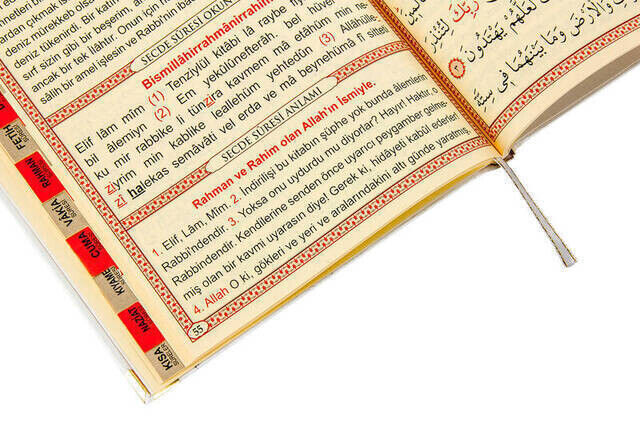 deniz mürekkep olsa
deniz tükenirdi. Bir katıl
sırf sizin gibi bir beşerim, an
ancak bir tek ilâhtır. Onun için
sâlih bir amel işlesin ve Rabbinin ibad
SECDE SÛRESİ OKUN
Bismillâhirrahmânirrahîm
Elif lâm mîm (1) Tenzîylül kitâbi lâ raybe
bil âlemiyn (2) Em yekûlûnefterâh. bel hü
ku mir rabbike li tünzira kavmem mâ etâhüm min ne
ziyrim min kablike leallehüm yehtedûn (3) Allâhülle
zî halekas semâvâti vel erda ve mâ beynehümâ fî sitteti
SECDE SÛRESİ ANLAMI
Rahman ve Rahim olan Allah'ın ismiyle.
1. Elif, Lâm, Mîm. 2. İndirilişi bu kitabın şüphe yok bunda âlemlerin
Rabbi'ndendir. 3. Yoksa onu uydurdu mu diyorlar? Hayır! Haktır, o
Rabbindendir. Kendilerine senden önce uyarıcı peygamber gelme-
miş olan bir kavmi uyarasın diye! Gerek ki, hidâyeti kabûl ederler!
4. Allah O ki, gökleri ve yeri ve aralarındakini altı günde yaratmış,
55
FETİH
RAHMAN
VAKIA
CUMA
KIYAME
NAZİAT
KISA
SURELER
رَبِّكَ لِتُنْذِرَ
لَعَلَّهُمْ يَهْتَدُونَ
وَالْاَرْضَ وَمَا بَيْنَهُمَا فِي سِتَّةِ